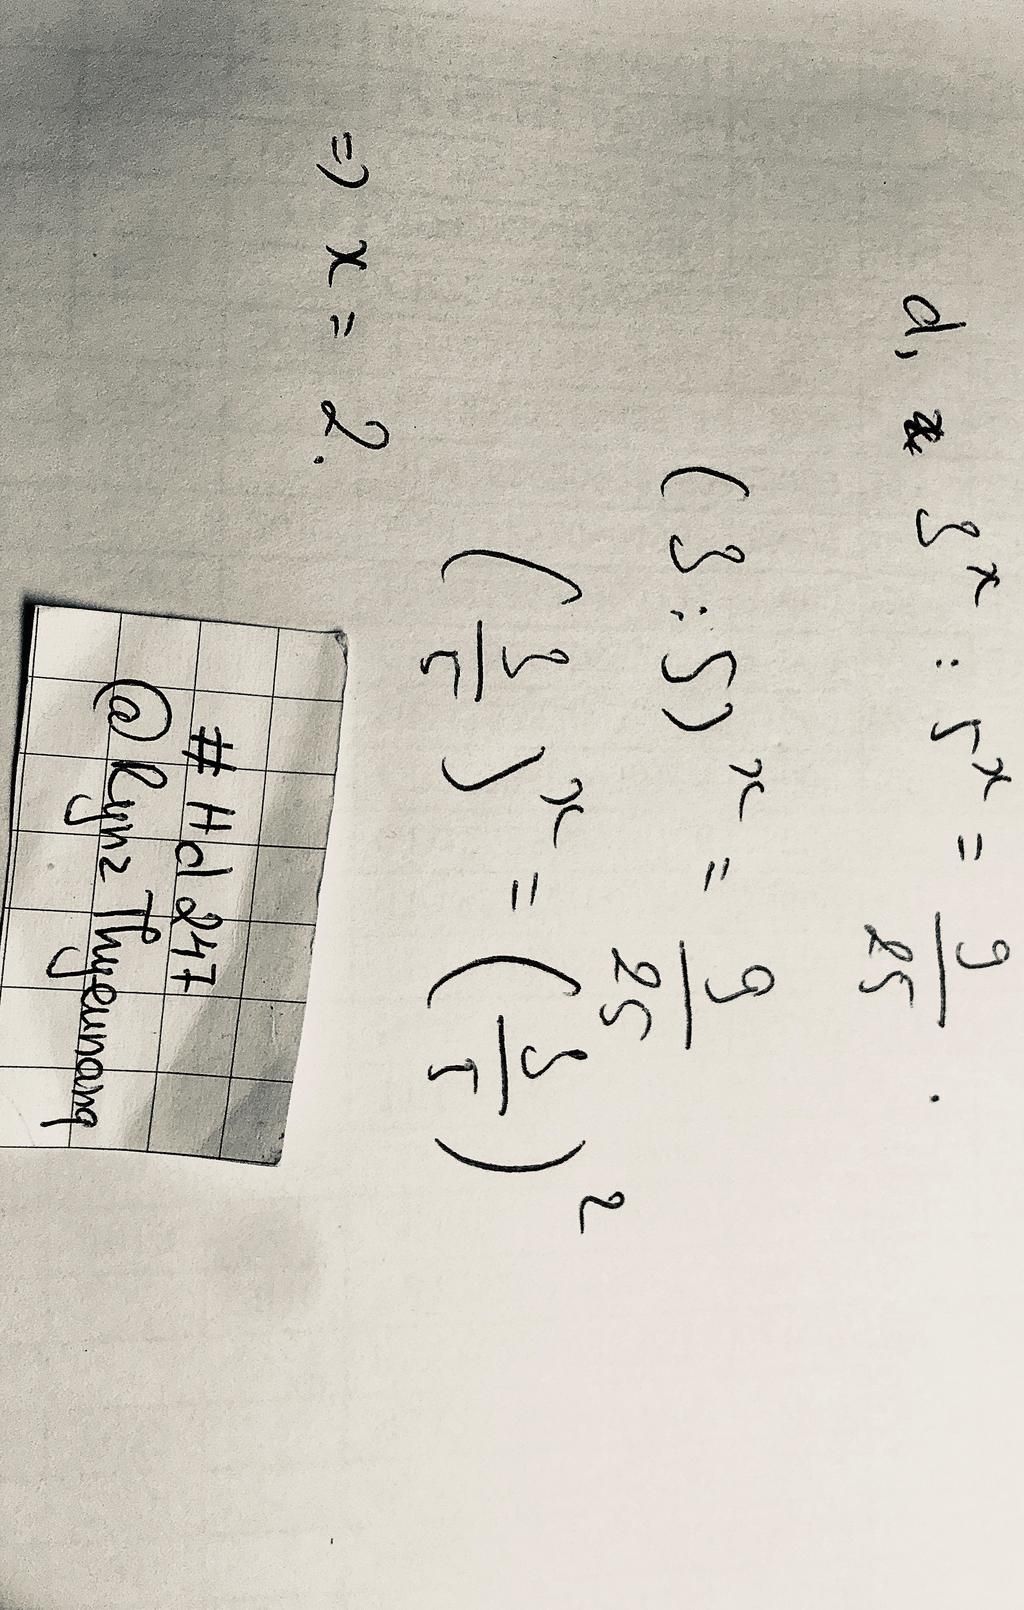 d, 3ˣ : 5ˣ = 9/25.
(3 : 5)ˣ = 9/25
(3/5)ˣ = (3/5)²
=> x = 2.
# Hd 247
@ Rynz Thyeunang